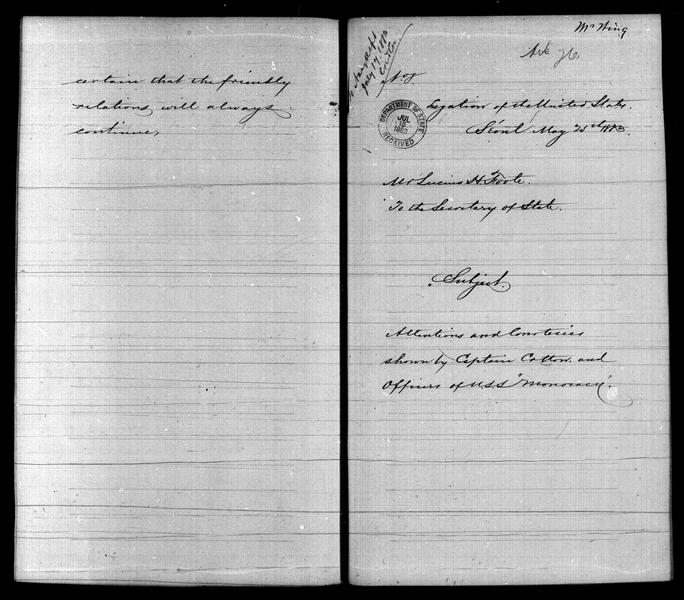 certain that the friendly
relations will always
continue.
Mr Wing
July 17, 1883
No 7
Legation of the United States.
Séoul May 25th 1883.
DEPARTMENT OF STATE
JUL
1883
RECEIVED
Mr Lucius H. Foote.
To the Secretary of State.
Subject.
Attentions and Courtesies
shown by Captain Cotton and
Officers of U.S.S "Monocacy".